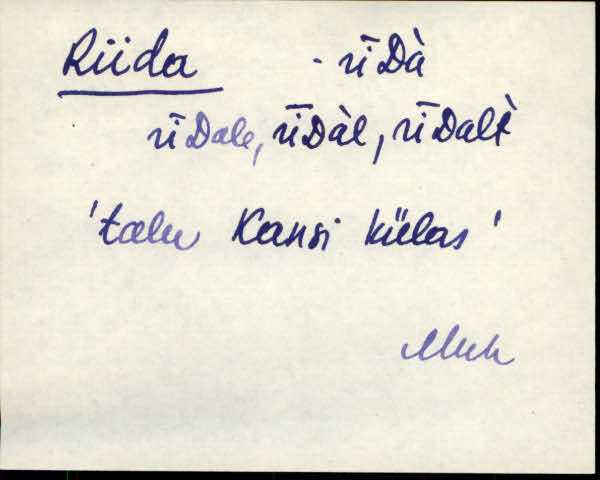 Riida - rīDà
rīDale, rīDàl, rīDalt̀
'talu Kansi külas'
Muh